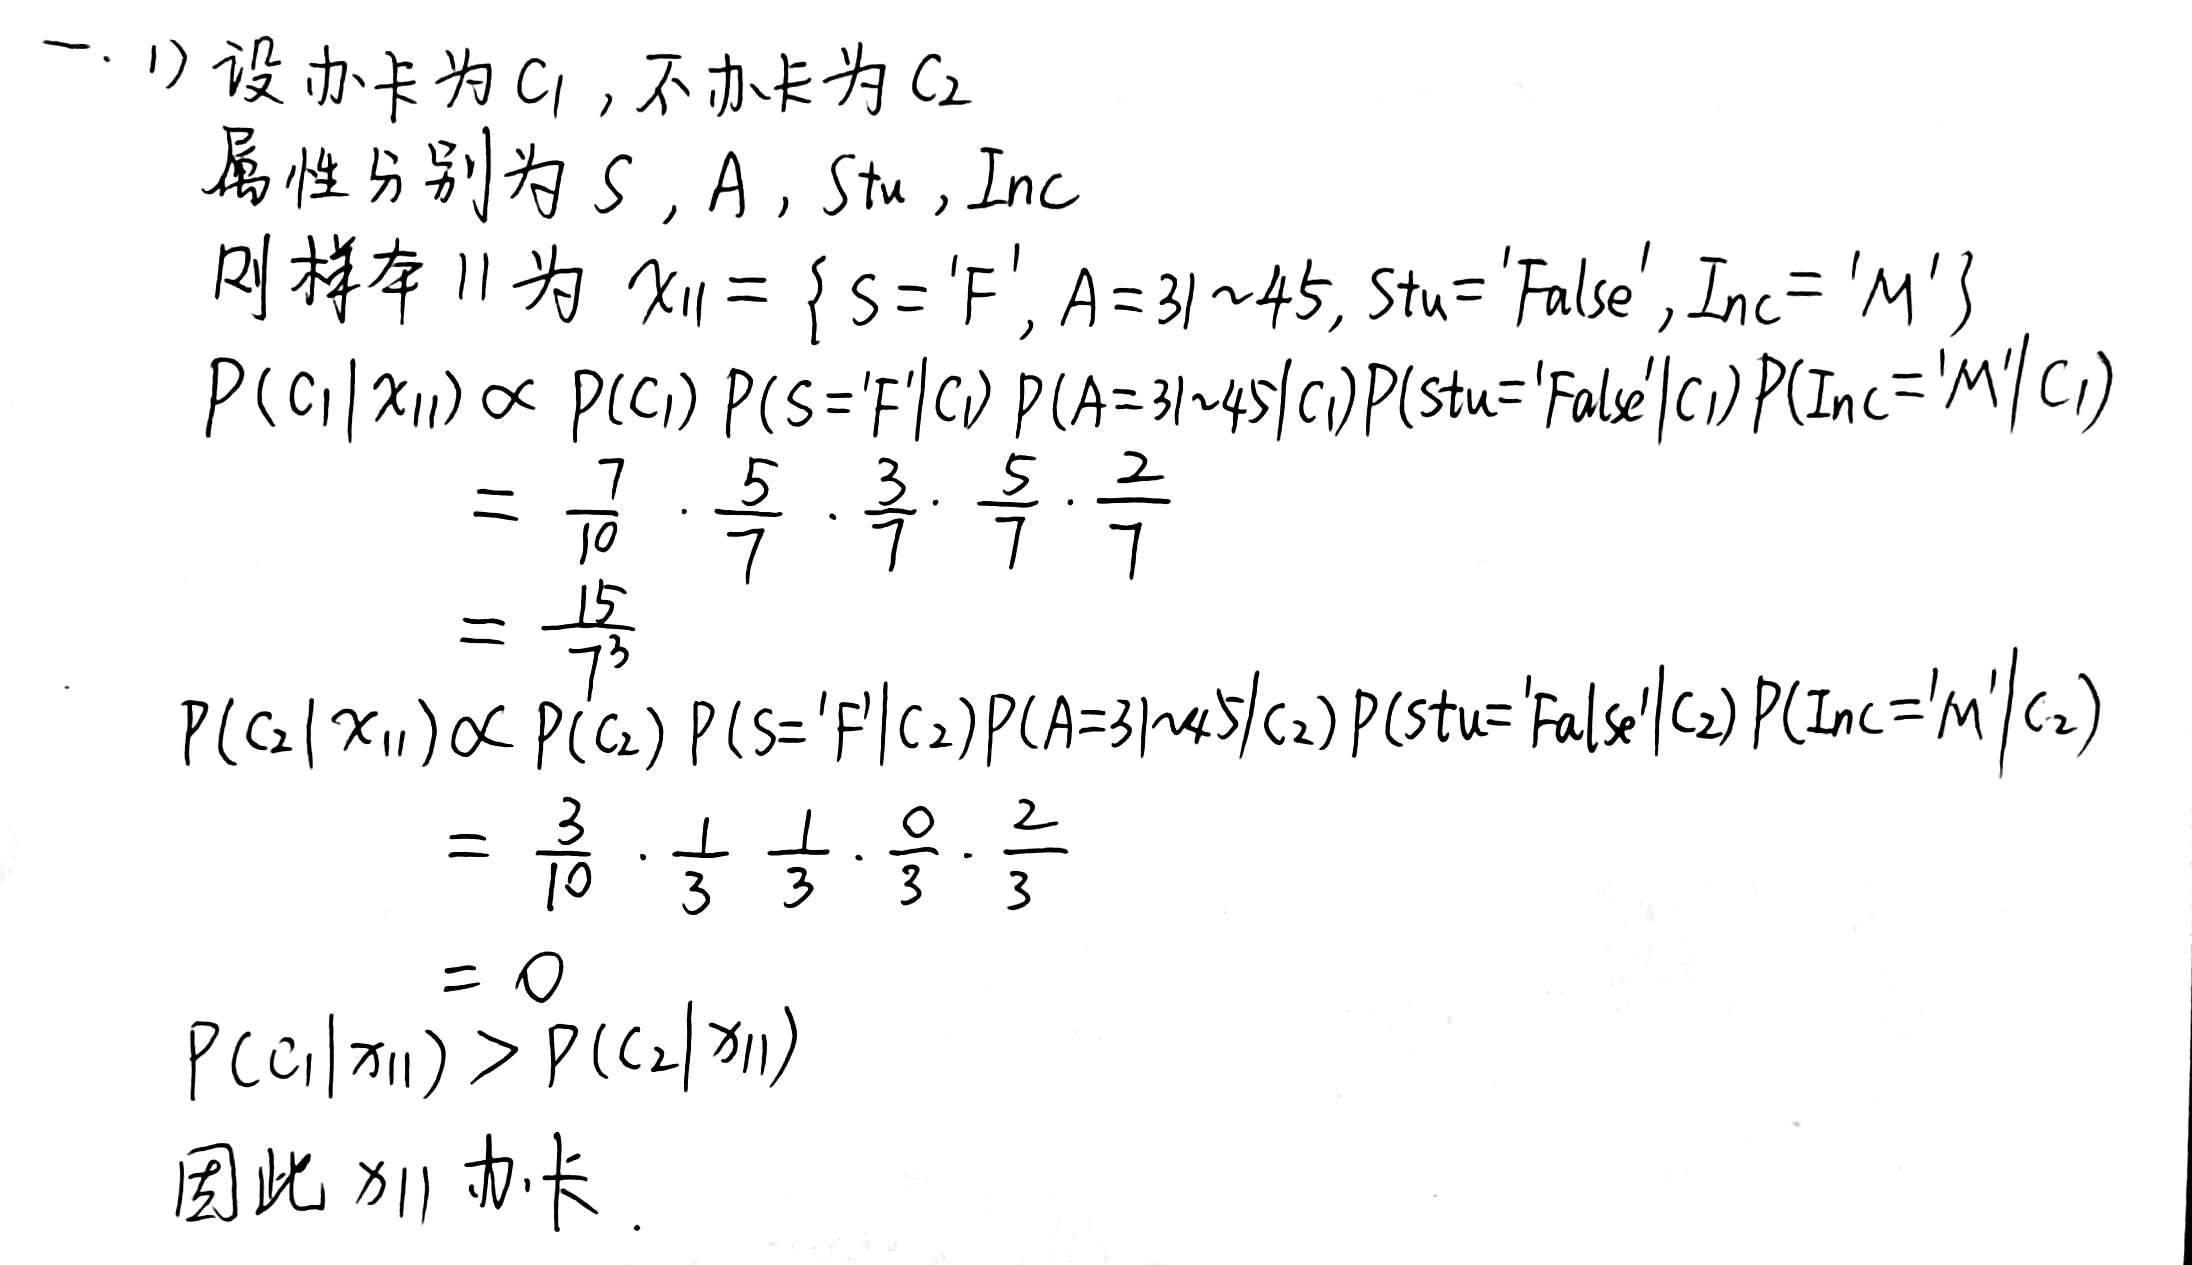 一. 1) 设办卡为 C₁ , 不办卡为 C₂
属性分别为 S , A , Stu , Inc
则样本 11 为 x₁₁ = { S = 'F' , A = 31 ~ 45, Stu = 'False' , Inc = 'M' }
P(C₁|x₁₁) ∝ P(C₁) P(S='F'|C₁) P(A=31~45|C₁) P(Stu='False'|C₁) P(Inc='M'|C₁)
= 7/10 · 5/7 · 3/7 · 5/7 · 2/7
= 15/7³
P(C₂|x₁₁) ∝ P(C₂) P(S='F'|C₂) P(A=31~45|C₂) P(Stu='False'|C₂) P(Inc='M'|C₂)
= 3/10 · 1/3 1/3 · 0/3 · 2/3
= 0
P(C₁|x₁₁) > P(C₂|x₁₁)
因此 x₁₁ 办卡 .